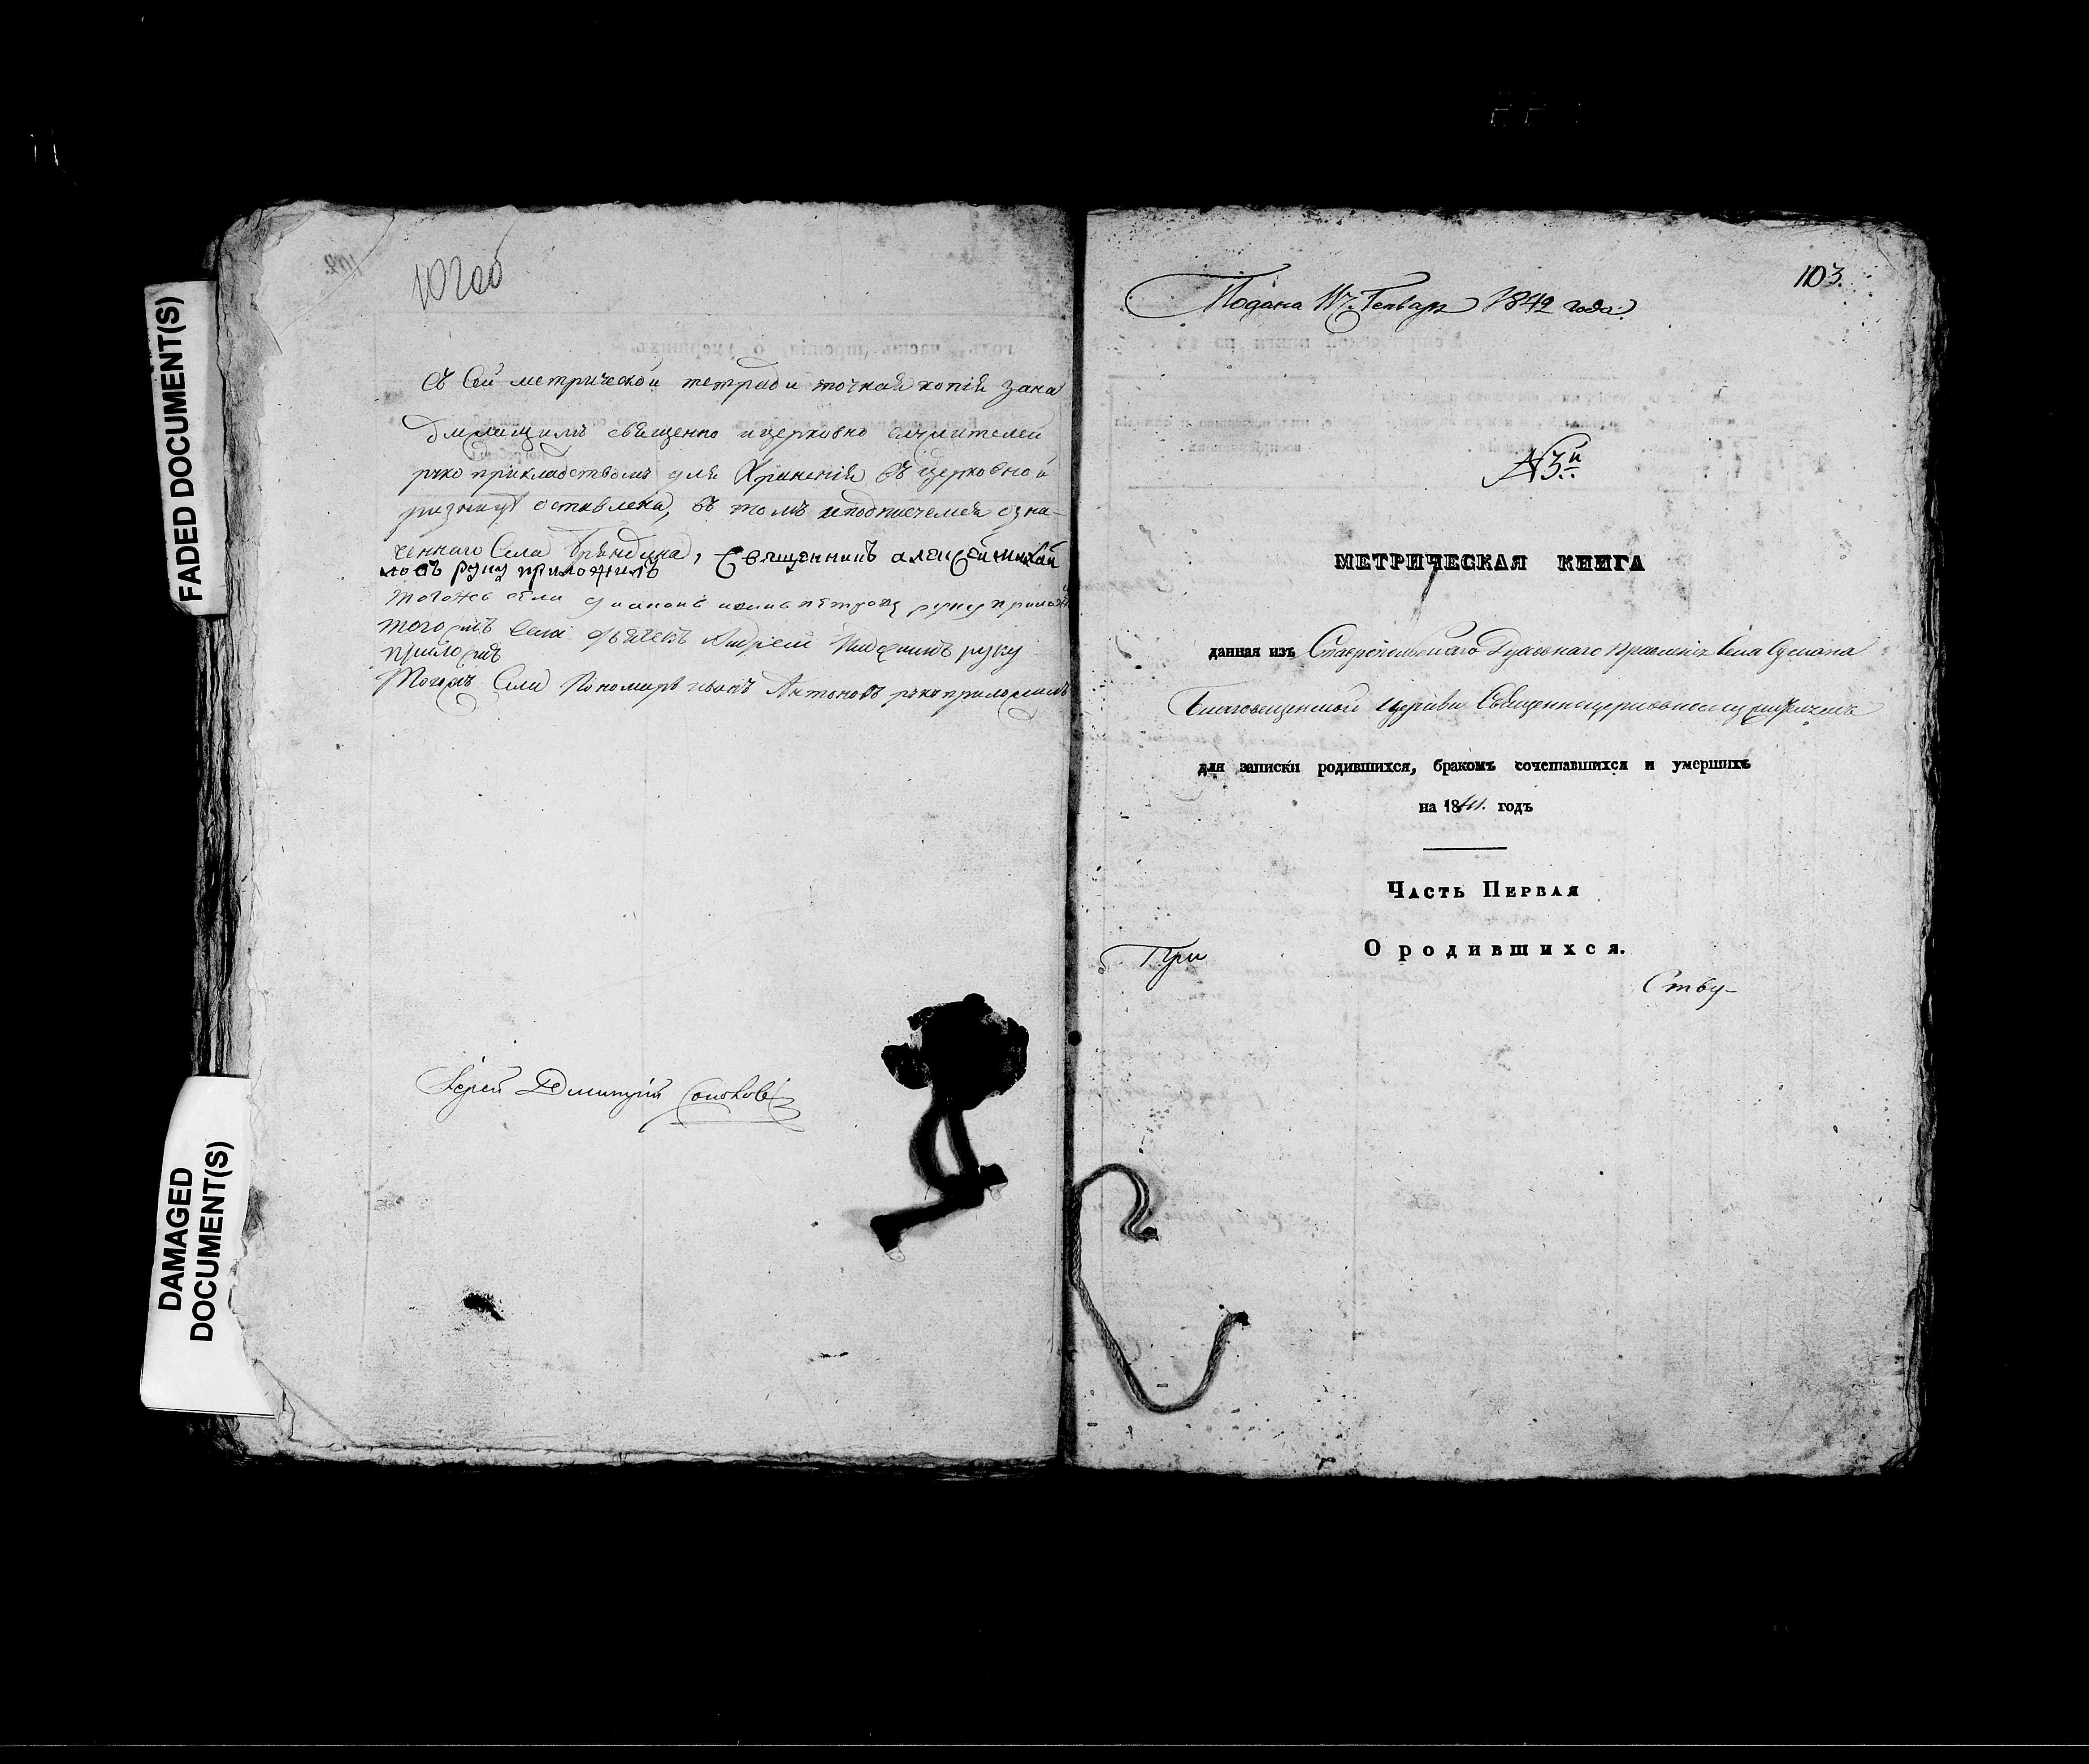 FADED DOCUMENT(S)
DAMAGED
DOCUMENT(S)
102об
Съ сей метрической тетради точная копія за на
длежащимъ священно и церковно служителей
рукоприкладствомъ для храненія въ церковной
ризницѣ оставлена, въ томъ и подписуемся озна-
ченнаго села Бряндина, Священникъ алексей михай
ловъ руку приложилъ
тогожъ села руку прилож
тогожъ села дьячекъ Андрей руку
приложилъ
Тогожъ села Пономарь иванъ Антоновъ руку приложилъ
Іерей Димитрій
103.
Подана 17. Генваря 1842 года.
№ 3й
МЕТРИЧЕСКАЯ КНИГА
данная изъ Ставропольскаго Духовнаго Правленія села
Благовещенской церкви Священноцерковнослужителямъ
для записки родившихся, бракомъ сочетавшихся и умершихъ
на 1841. годъ
Часть Первая
О родившихся.
При
Ству-